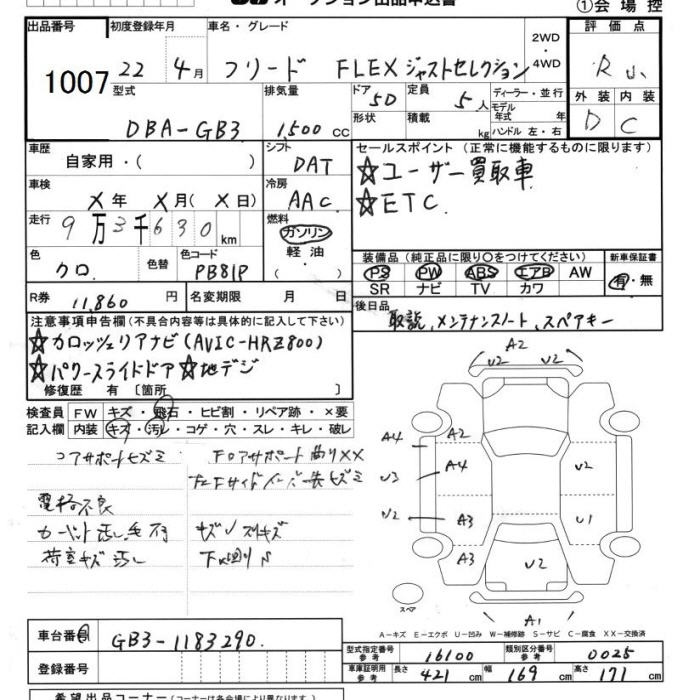 オークション出品申込書 ①会場控
出品番号 初度登録年月 車名・グレード 2WD・4WD 評価点
1007 22 4月 フリード FLEX ジャストセレクション R
型式 排気量 ドア 定員 ディーラー・並行 外装 内装
DBA-GB3 1,500 cc 5D 5人 モデル年式 年 D C
形状 積載 kg ハンドル 左・右
車歴 シフト セールスポイント (正常に機能するものに限ります)
自家用・( ) DAT ☆ユーザー買取車
車検 冷房 ☆ETC
X年 X月(X日) AAC
走行 燃料
9万3千630km ガソリン
色 色替 色コード 軽油・( ) 装備品 (純正品に限り○をつけてください) 新車保証書
クロ PB81P PS PW ABS エアB AW 有・無
SR ナビ TV カワ
R券 11,860円 名変期限 月 日 後日品
取説、メンテナンスノート、スペアキー
注意事項申告欄(不具合内容等は具体的に記入して下さい)
☆カロッツェリアナビ(AVIC-HRZ800)
☆パワースライドドア☆地デジ
修復歴 有〔箇所 〕
検査員記入欄 FW キズ・飛石・ヒビ割・リペア跡・×要
内装 キズ・汚レ・コゲ・穴・スレ・キレ・破レ
コアサポートキズミ
電格不良
A2
U2 U2
A4 A2
A4 U2
U3
U2 A3 U1
A3 U2
スペア A1
A-キズ E-エクボ U-凹み W-補修跡 S-サビ C-腐食 XX-交換済
車台番号 GB3-1183290.
登録番号
型式指定番号 参考 16100 類別区分番号 参考 0025
車庫証明用 参考 長さ 421cm 幅 169cm 高さ 171cm
希望出品コーナー(コーナー名は各会場により